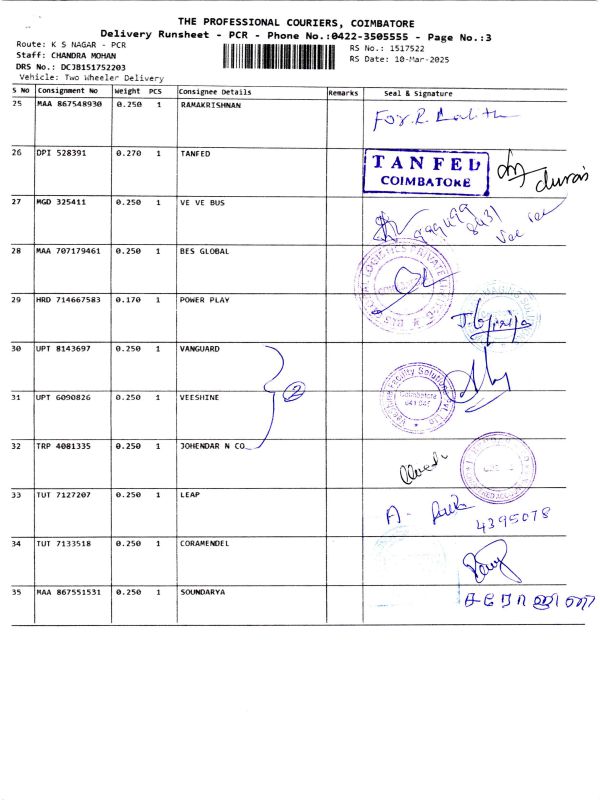 THE PROFESSIONAL COURIERS, COIMBATORE
Delivery Runsheet - PCR - Phone No.:0422-3505555 - Page No.:3
Route: K S NAGAR - PCR
Staff: CHANDRA MOHAN
DRS No.: DCJB151752203
Vehicle: Two Wheeler Delivery
RS No.: 1517522
RS Date: 10-Mar-2025
S No Consignment No Weight PCS Consignee Details Remarks Seal & Signature
25 MAA 867548930 0.250 1 RAMAKRISHNAN
26 DPI 528391 0.270 1 TANFED
TANFED
COIMBATORE
durai
27 MGD 325411 0.250 1 VE VE BUS
28 MAA 707179461 0.250 1 BES GLOBAL
29 HRD 714667583 0.170 1 POWER PLAY
30 UPT 8143697 0.250 1 VANGUARD
31 UPT 6090826 0.250 1 VEESHINE
2
Coimbatore
32 TRP 4081335 0.250 1 JOHENDAR N CO
33 TUT 7127207 0.250 1 LEAP
4395078
34 TUT 7133518 0.250 1 CORAMENDEL
35 MAA 867551531 0.250 1 SOUNDARYA
சரோஜினி